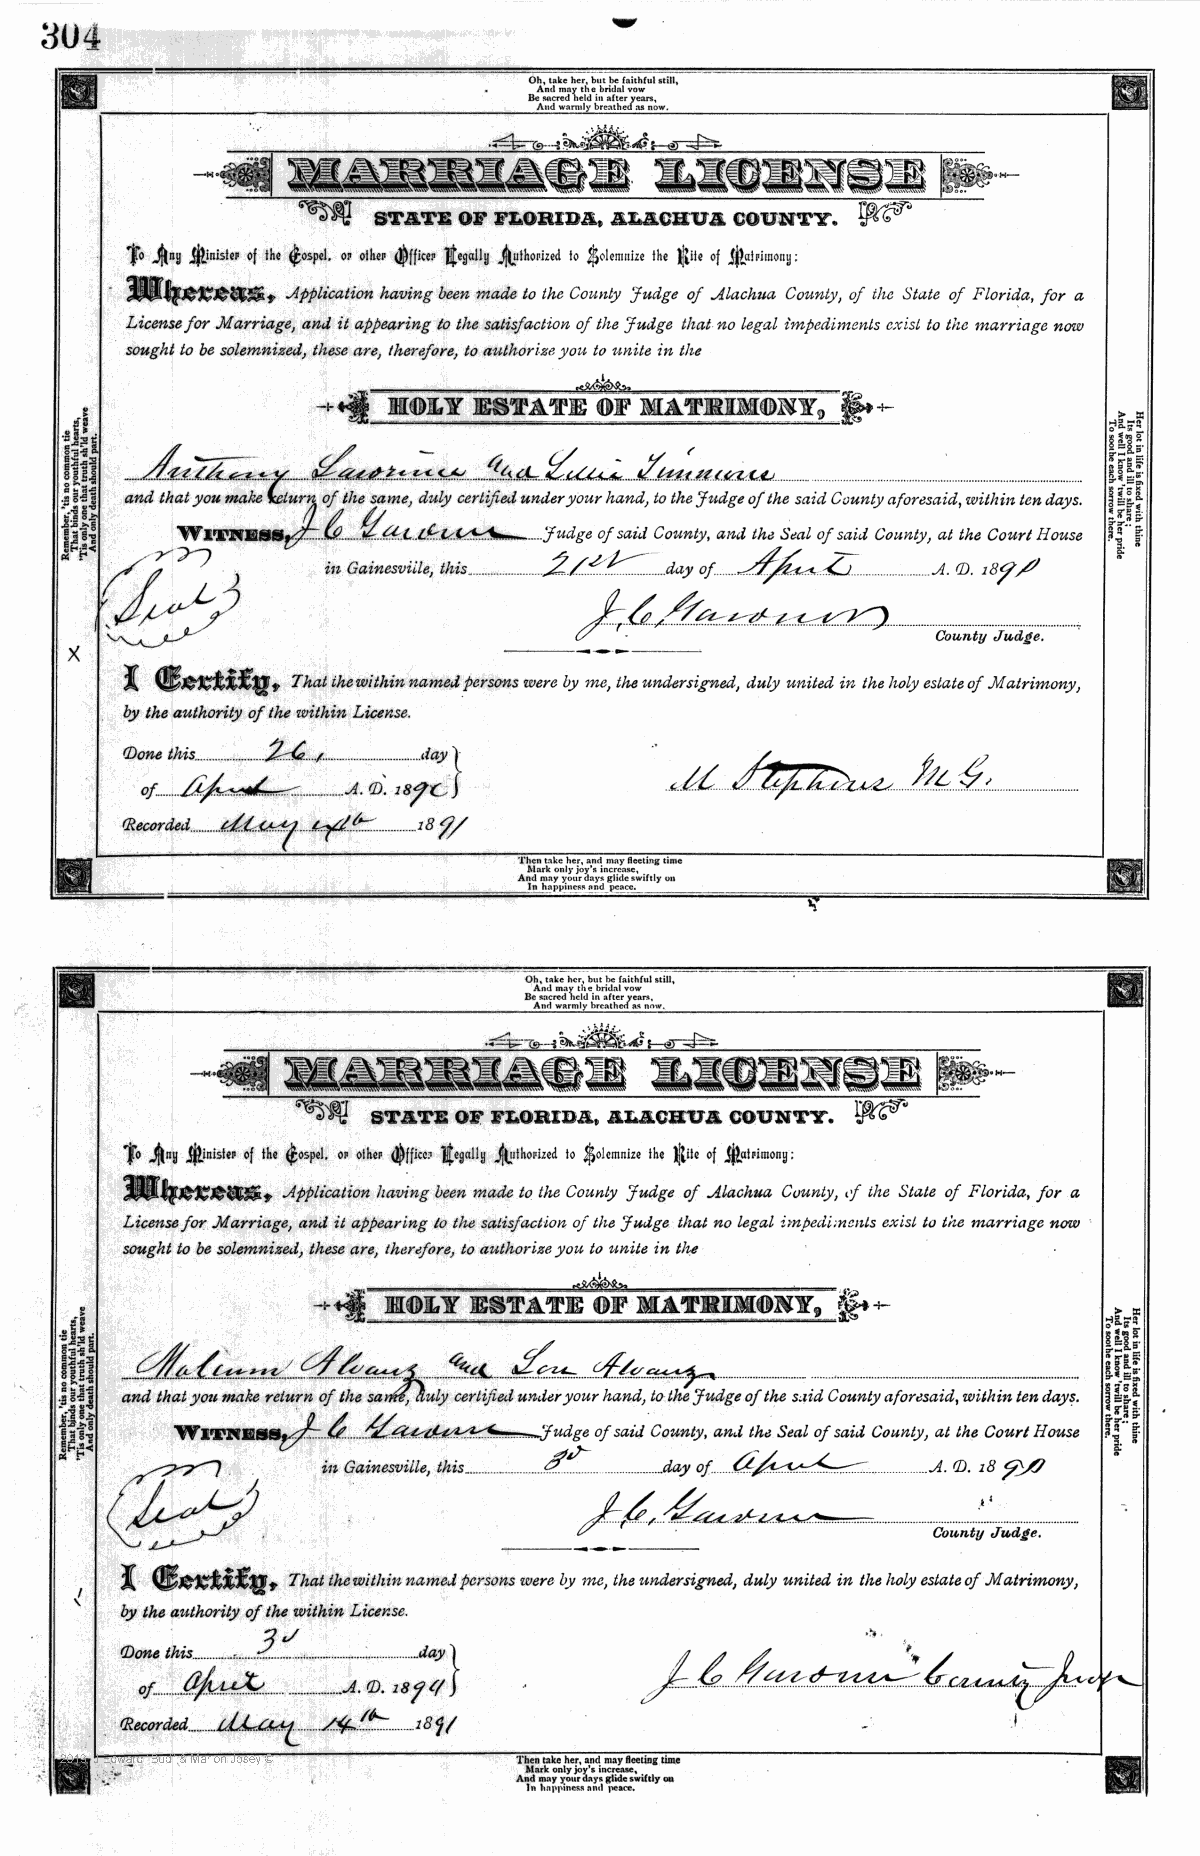 304
Oh, take her, but be faithful still,
And may the bridal vow
Be sacred held in after years,
And warmly breathed as now.
MARRIAGE LICENSE
STATE OF FLORIDA, ALACHUA COUNTY.
To Any Minister of the Gospel, or other Officer Legally Authorized to Solemnize the Rite of Matrimony:
Whereas, Application having been made to the County Judge of Alachua County, of the State of Florida, for a
License for Marriage, and it appearing to the satisfaction of the Judge that no legal impediments exist to the marriage now
sought to be solemnized, these are, therefore, to authorize you to unite in the
HOLY ESTATE OF MATRIMONY,
Remember, 'tis no common tie
That binds our youthful hearts,
'Tis only one that truth sh'ld weave
And only death should part.
Her lot in life is fixed with thine
Its good and ill to share;
And well I know 'twill be her pride
To soothe each sorrow there.
Anthony Lawrence and Lillie Timmons
and that you make return of the same, duly certified under your hand, to the Judge of the said County aforesaid, within ten days.
WITNESS, J C Gardner Judge of said County, and the Seal of said County, at the Court House
in Gainesville, this 21st day of April A. D. 1890
Seal
J. C. Gardner
County Judge.
X
I Certify, That the within named persons were by me, the undersigned, duly united in the holy estate of Matrimony,
by the authority of the within License.
Done this 26, day
of April A. D. 1890
M Stephens M G.
Recorded May 14th 1891
Then take her, and may fleeting time
Mark only joy's increase,
And may your days glide swiftly on
In happiness and peace.
Oh, take her, but be faithful still,
And may the bridal vow
Be sacred held in after years,
And warmly breathed as now.
MARRIAGE LICENSE
STATE OF FLORIDA, ALACHUA COUNTY.
To Any Minister of the Gospel, or other Officer Legally Authorized to Solemnize the Rite of Matrimony:
Whereas, Application having been made to the County Judge of Alachua County, of the State of Florida, for a
License for Marriage, and it appearing to the satisfaction of the Judge that no legal impediments exist to the marriage now
sought to be solemnized, these are, therefore, to authorize you to unite in the
HOLY ESTATE OF MATRIMONY,
Remember, 'tis no common tie
That binds our youthful hearts,
'Tis only one that truth sh'ld weave
And only death should part.
Her lot in life is fixed with thine
Its good and ill to share;
And well I know 'twill be her pride
To soothe each sorrow there.
Alvarez and Lou Alvarez
and that you make return of the same, duly certified under your hand, to the Judge of the said County aforesaid, within ten days.
WITNESS, J C Gardner Judge of said County, and the Seal of said County, at the Court House
in Gainesville, this 3d day of April A. D. 1890
Seal
J. C. Gardner
County Judge.
I Certify, That the within named persons were by me, the undersigned, duly united in the holy estate of Matrimony,
by the authority of the within License.
Done this 3d day
of April A. D. 189
J C Gardner County Judge
Recorded May 14th 1891
Then take her, and may fleeting time
Mark only joy's increase,
And may your days glide swiftly on
In happiness and peace.